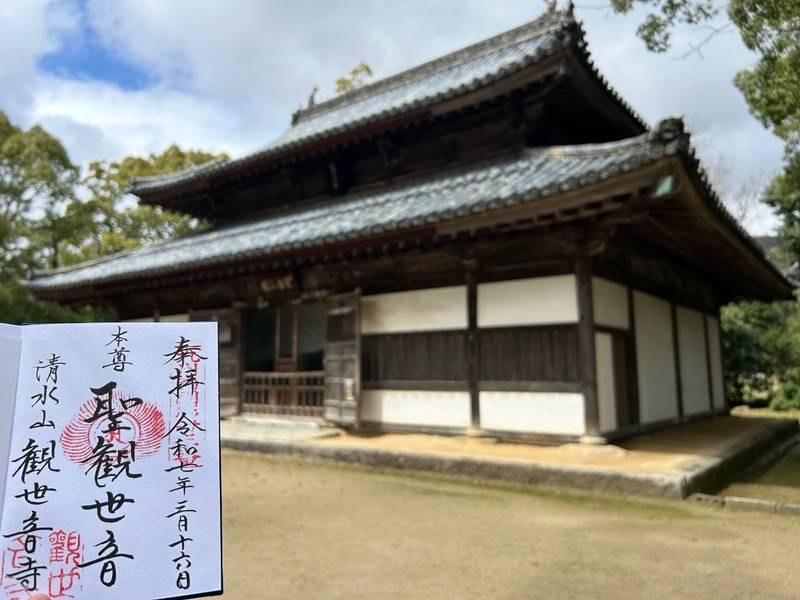 奉拝 令和七年三月十六日
本尊
聖観世音
清水山観世音寺